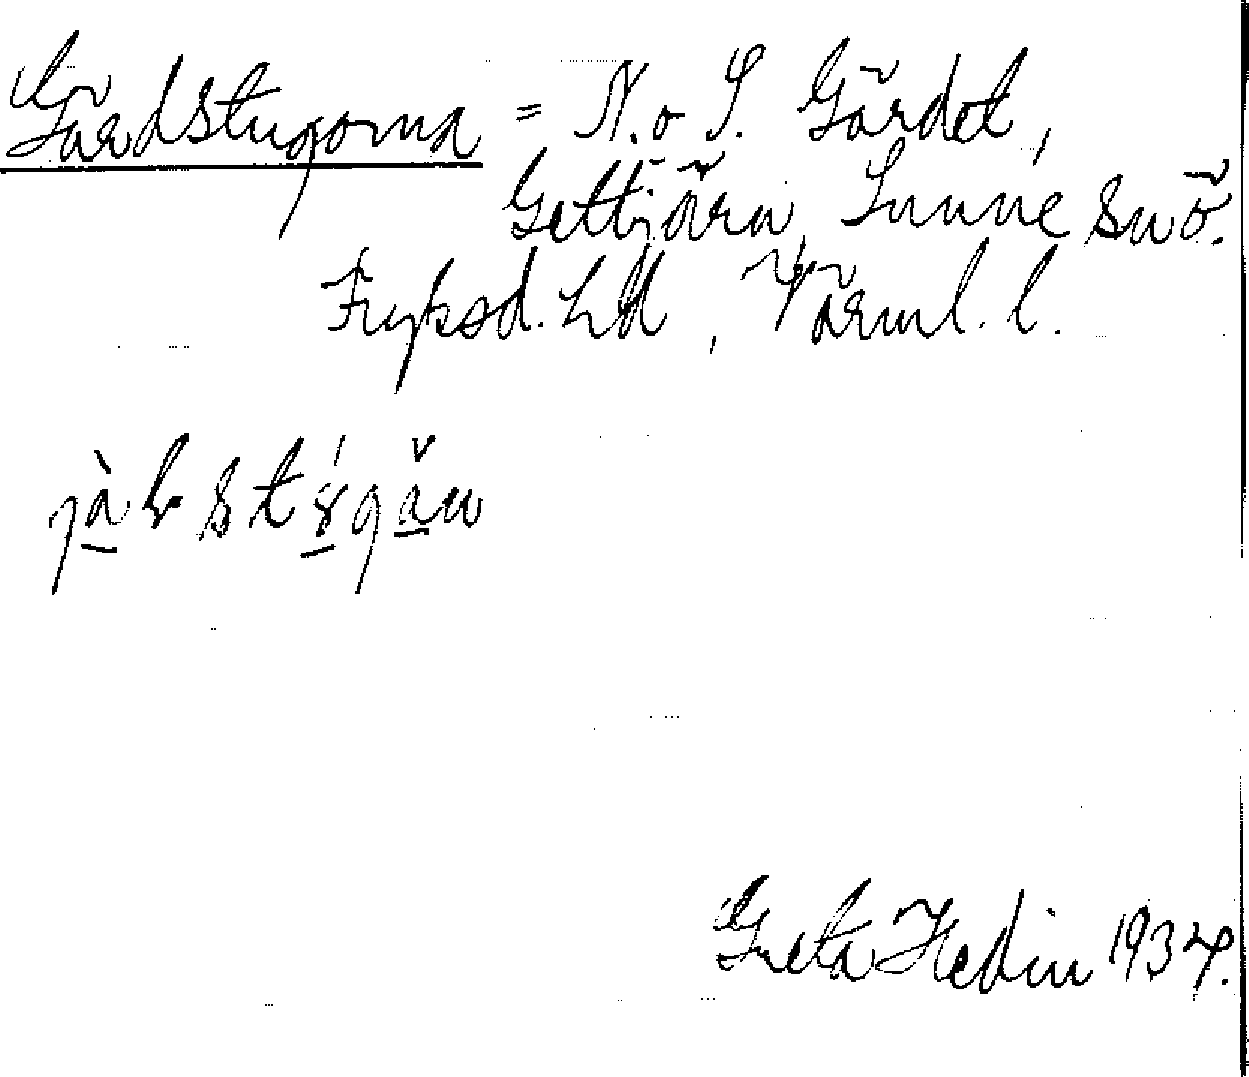 Gärdstugorna = N. o S. Gärdet,
Gettjärn, Sunne snö.
Fryksd. hd, Värml. l.
Greta Hedin 1934.